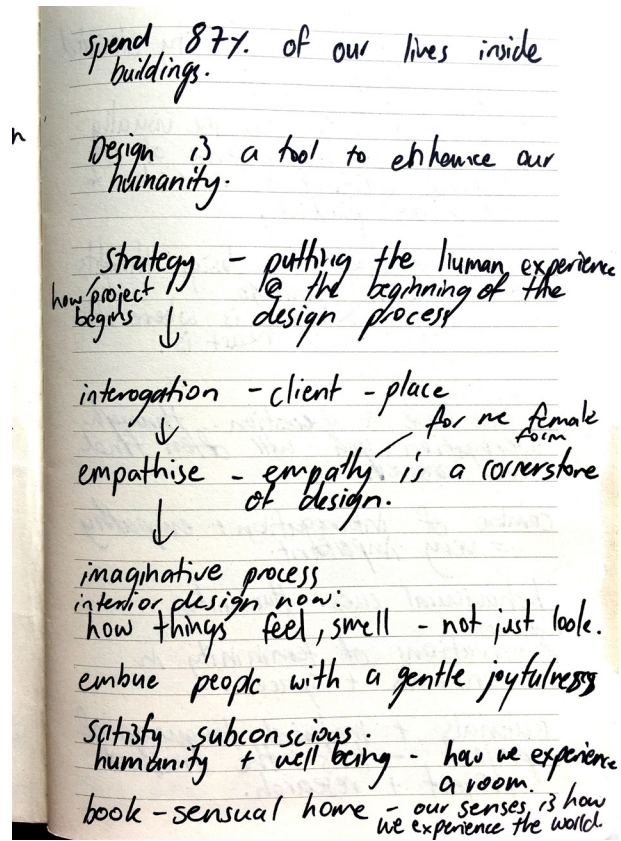 spend 87% of our lives inside
buildings.
Design is a tool to enhance our
humanity.
strategy - putting the human experience
how project
begins
@ the beginning of the
design process
interogation - client - place
for me female
form
empathise - empathy is a cornerstore
of design.
imaginative process
interior design now:
how things feel, smell - not just look.
embue people with a gentle joyfulness
satisfy subconscious.
humanity + well being - how we experience
a room.
book - sensual home - our senses is how
we experience the world.